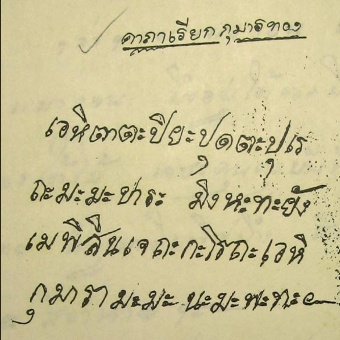 คาถาเรียกกุมารทอง
เอหิตาตะปิยะปุตตะปุเร
ถะมะมะปาระ มิงหะทะยัง
เมพิสิ์นเจถะกะโรถะเอหิ
กุมารา มะมะ นะมะพะทะ